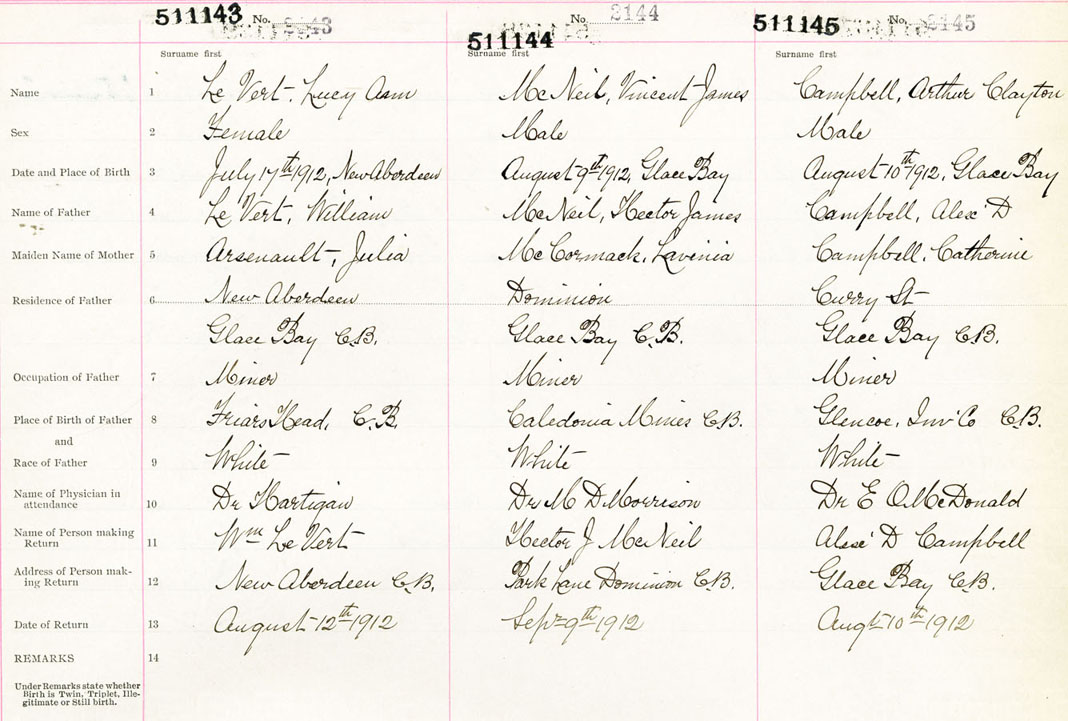 511143 No. 2143
511144 No. 2144
511145 No. 2145
Surname first Surname first Surname first
Name 1 Le Vert, Lucy Ann McNeil, Vincent James Campbell, Arthur Clayton
Sex 2 Female Male Male
Date and Place of Birth 3 July 17th 1912, New Aberdeen August 9th 1912, Glace Bay August 10th 1912, Glace Bay
Name of Father 4 Le Vert, William McNeil, Hector James Campbell, Alex D
Maiden Name of Mother 5 Arsenault, Julia McCormack, Lavinia Campbell, Catherine
Residence of Father 6 New Aberdeen Dominion Curry St
Glace Bay C.B. Glace Bay C.B. Glace Bay C.B.
Occupation of Father 7 Miner Miner Miner
Place of Birth of Father 8 Friars Head, C.B. Caledonia Mines C.B. Glencoe, Inv Co C.B.
and
Race of Father 9 White White White
Name of Physician in
attendance 10 Dr Hartigan Dr M D Morrison Dr E O McDonald
Name of Person making
Return 11 Wm Le Vert Hector J McNeil Alex D Campbell
Address of Person mak-
ing Return 12 New Aberdeen C.B. Park Lane Dominion C.B. Glace Bay C.B.
Date of Return 13 August 12th 1912 Sept 9th 1912 Augt 10th 1912
REMARKS 14
Under Remarks state whether
Birth is Twin, Triplet, Ille-
gitimate or Still birth.